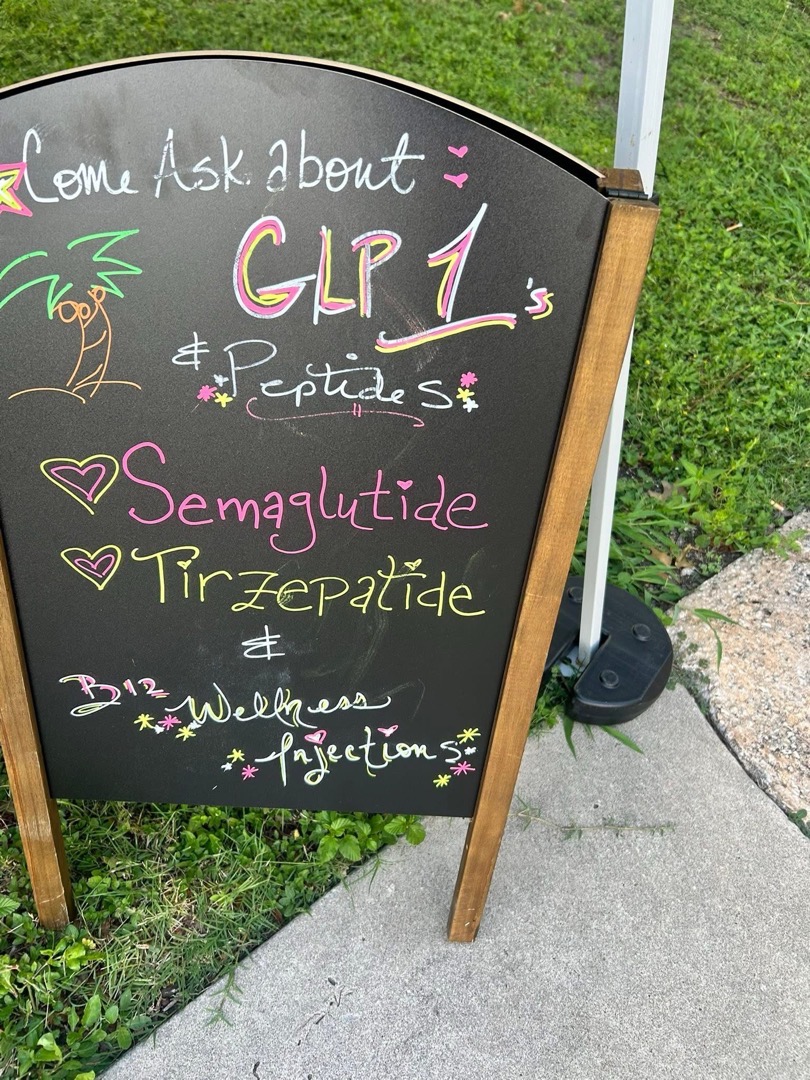 Come Ask about
GLP 1's
& Peptides
Semaglutide
Tirzepatide
&
B12 Wellness
Injections